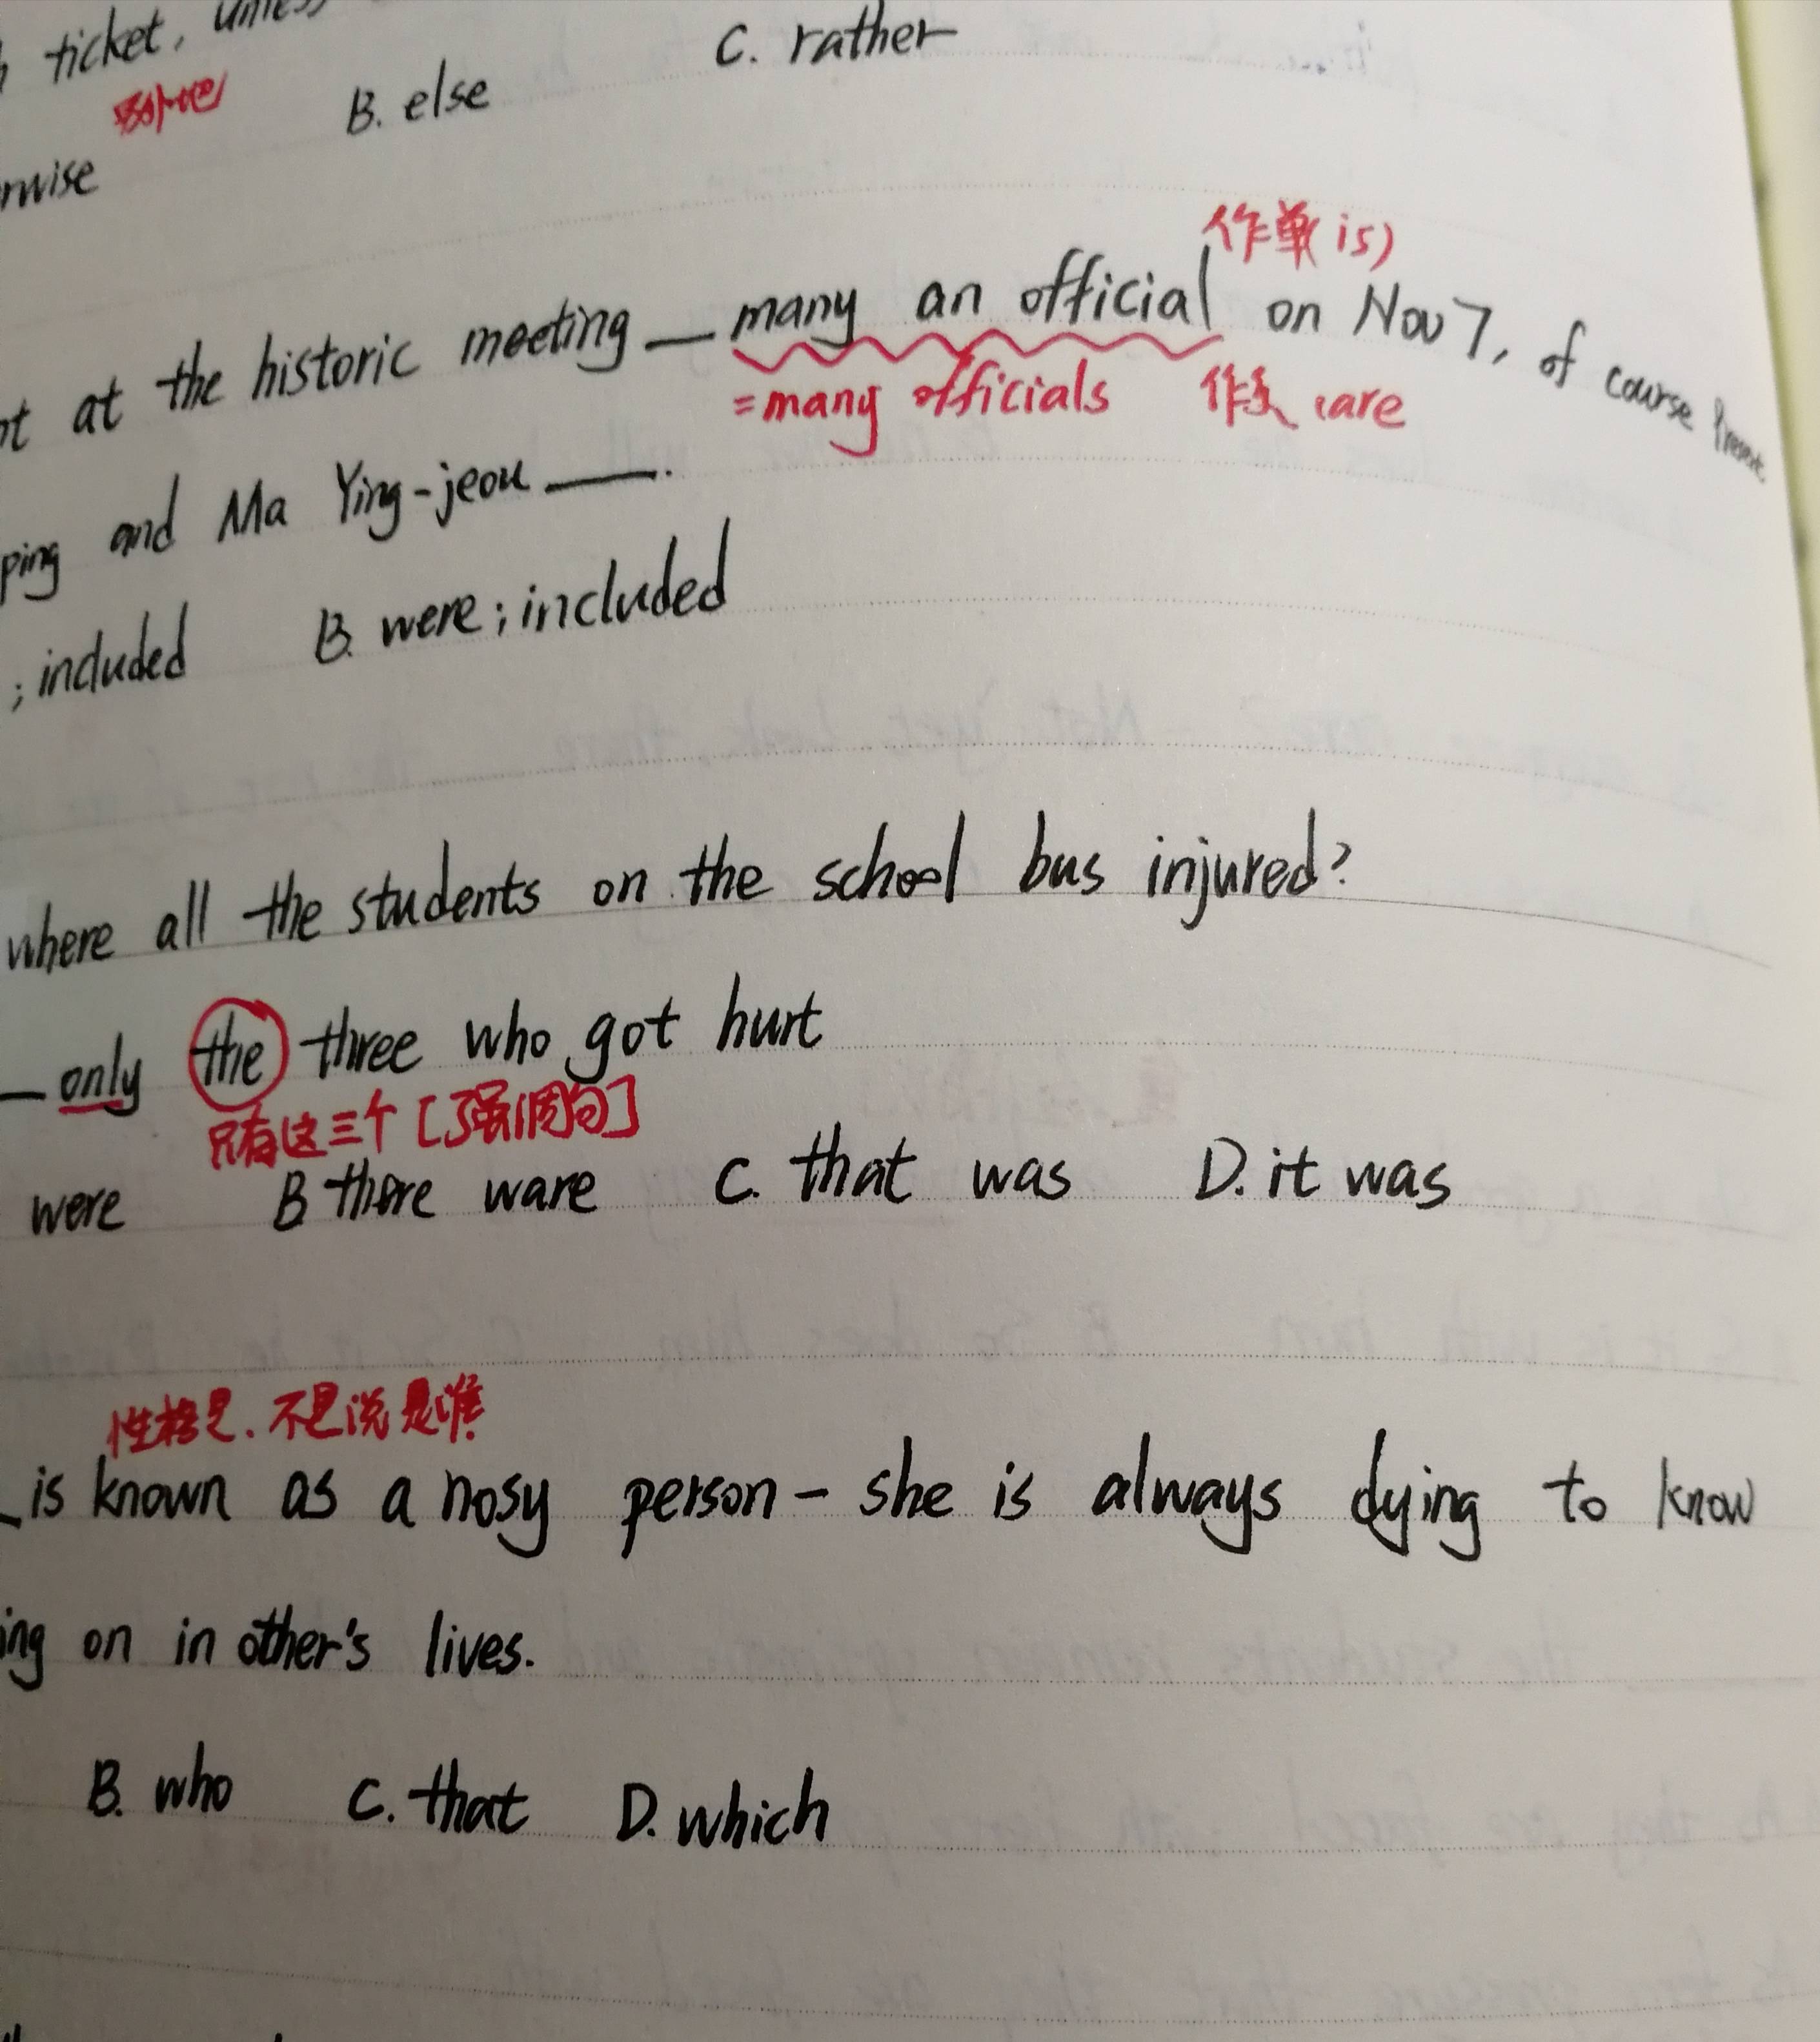 ticket, unless
C. rather
别吧
B. else
rwise
作单(is)
at the historic meeting — many an official on Nov 7, of course Present
=many officials 作多 are
ping and Ma Ying-jeou —.
; included B. were; included
where all the students on the school bus injured?
— only the three who got hurt
只有这三个[强调句]
were B there ware C. that was D. it was
性格是.不是说是谁
is known as a nosy person - she is always dying to know
ing on in other's lives.
B. who C. that D. which